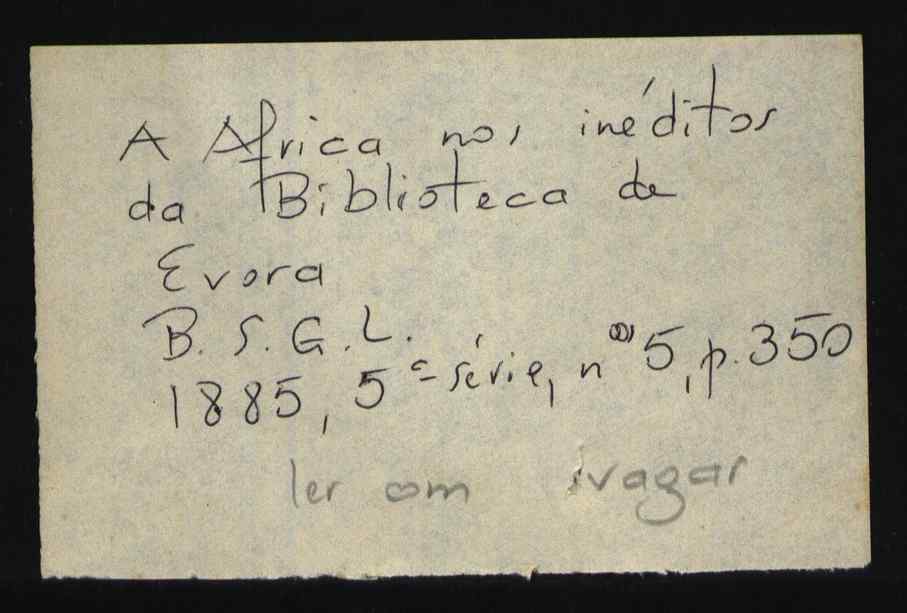 A Africa nos inéditos
da Biblioteca de
Evora
B. S. G. L.
1885, 5ª série, nº 5, p. 350
ler com vagar